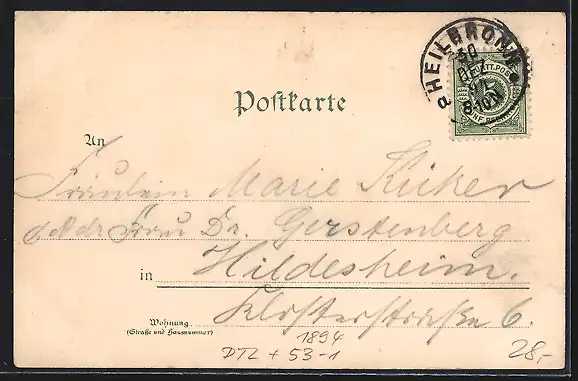 HEILBRONN
30
8-10N
Postkarte
An
Fräulein Marie Küker
Adr Frau Dr. Gerstenberg
in Hildesheim.
Klosterstraße 6.
Wohnung
(Straße und Hausnummer)
1894
DTZ + 53-1
28,-